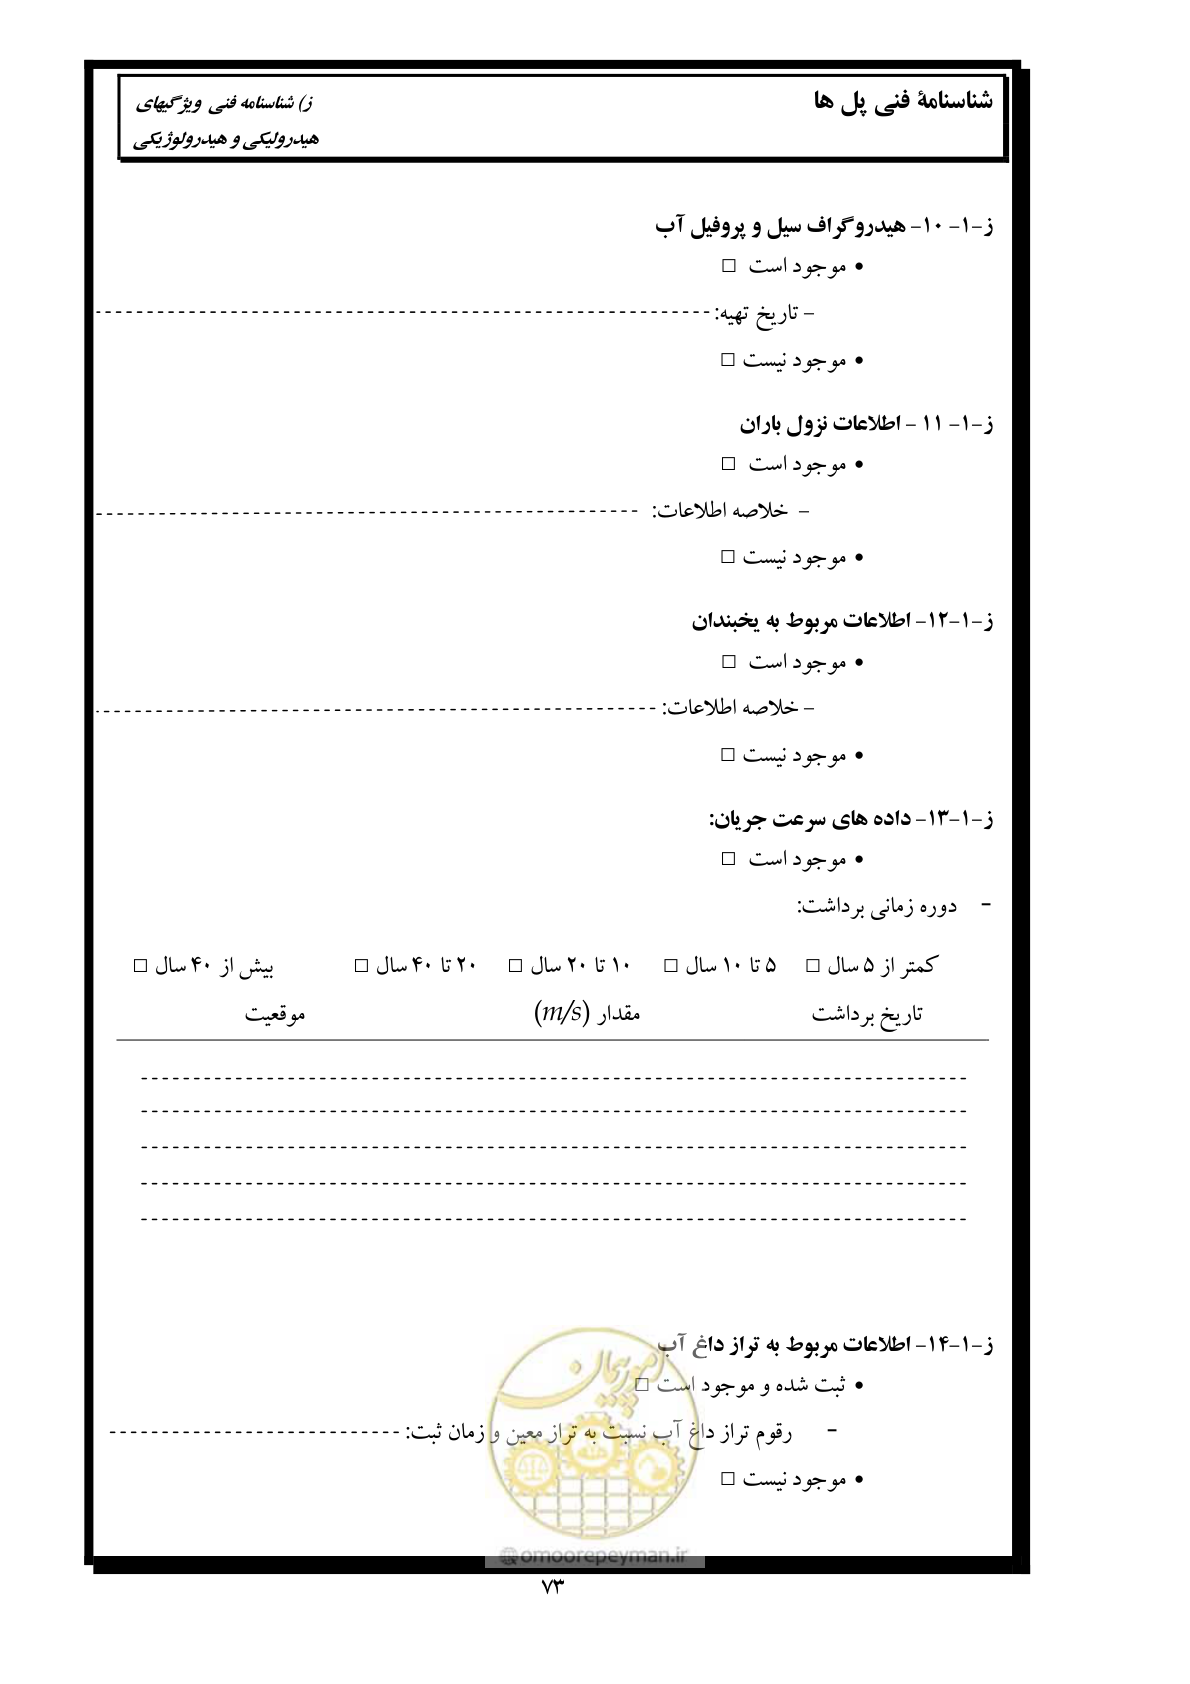 شناسنامهٔ فنی پل ها
ز) شناسنامه فنی ویژگیهای
هیدرولیکی و هیدرولوژیکی
ز-۱- ۱۰- هیدروگراف سیل و پروفیل آب
• موجود است □
– تاریخ تهیه: ------------------------------------------------------------
• موجود نیست □
ز-۱- ۱۱ - اطلاعات نزول باران
• موجود است □
– خلاصه اطلاعات: -----------------------------------------------------
• موجود نیست □
ز-۱-۱۲- اطلاعات مربوط به یخبندان
• موجود است □
– خلاصه اطلاعات: ------------------------------------------------------
• موجود نیست □
ز-۱-۱۳- داده های سرعت جریان:
• موجود است □
- دوره زمانی برداشت:
کمتر از ۵ سال □ ۵ تا ۱۰ سال □ ۱۰ تا ۲۰ سال □ ۲۰ تا ۴۰ سال □ بیش از ۴۰ سال □
تاریخ برداشت مقدار (m/s) موقعیت
--------------------------------------------------------------------------------
--------------------------------------------------------------------------------
--------------------------------------------------------------------------------
--------------------------------------------------------------------------------
--------------------------------------------------------------------------------
ز-۱-۱۴- اطلاعات مربوط به تراز داغ آب
• ثبت شده و موجود است □
- رقوم تراز داغ آب نسبت به تراز معین و زمان ثبت: ----------------------------
• موجود نیست □
امور پیمان
@omoorepeyman.ir
۷۳